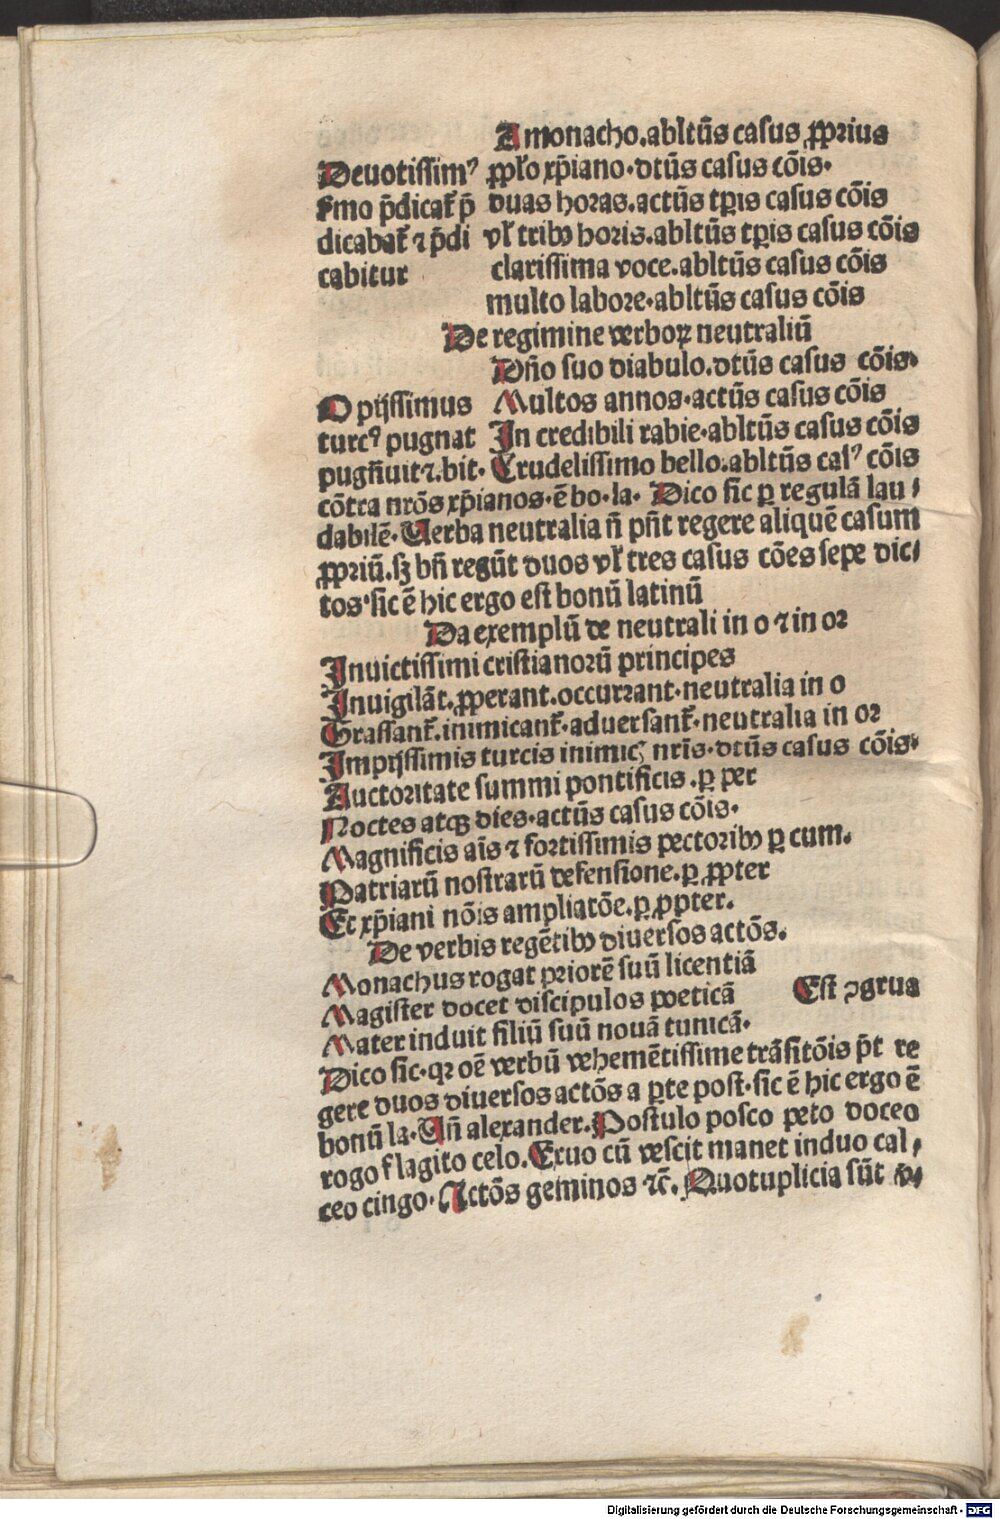 A monacho.abltūs casus ꝓprius
Deuotissimꝰ ꝓplo xp̄iano.dtūs casus cōis.
smo p̄dicat̄ p̄ duas horas.actūs tp̄is casus cōis
dicabat̄ ⁊ p̄di vl̄ tribꝰ horis.abltūs tp̄is casus cōis
cabitur clarissima voce.abltūs casus cōis
multo labore.abltūs casus cōis
De regimine verboꝝ neutraliū
Dn̄o suo diabulo.dtūs casus cōis.
O pijssimus Multos annos.actūs casus cōis
turcꝰ pugnat In credibili rabie.abltūs casus cōis
pugn̄uit⁊.bit. Crudelissimo bello.abltūs casꝰ cōis
cōtra nrōs xp̄ianos.ē bo.la. Dico sic ꝑ regulā lau⸗
dabilē.Verba neutralia n̄ pn̄t regere aliquē casum
ꝓpriū.sꝫ bn̄ regūt duos vl̄ tres casus cōes sepe dic⸗
tos.sic ē hic ergo est bonū latinū
Da exemplū de neutrali in o ⁊ in or
Inuictissimi cristianorū principes
Inuigilāt.ꝓperant.occurrant.neutralia in o
Grassant̄.inimicant̄.aduersant̄.neutralia in or
Impijssimis turcis inimicꝭ nrīs.dtūs casus cōis.
Auctoritate summi pontificis.ꝑ per
Noctes atqꝫ dies.actūs casus cōis.
Magnificis aīs ⁊ fortissimis pectoribꝰ ꝑ cum.
Patriarū nostrarū defensione.ꝑ ꝓpter
Et xp̄iani nōis ampliatōe.ꝑ ꝓpter.
De verbis regētibꝰ diuersos actōs.
Monachus rogat priorē suū licentiā
Magister docet discipulos poeticā Est ꝯgrua
Mater induit filiū suū nouā tunicā.
Dico sic.qꝛ oē verbū vehemētissime trāsitōis p̄t re
gere duos diuersos actōs a ꝑte post.sic ē hic ergo ē
bonū la.Vn̄ alexander.Postulo posco peto doceo
rogo flagito celo.Exuo cū vescit manet induo cal⸗
ceo cingo.Actōs geminos ⁊c̄.Quotuplicia sūt v⸗
Digitalisierung gefördert durch die Deutsche Forschungsgemeinschaft - DFG